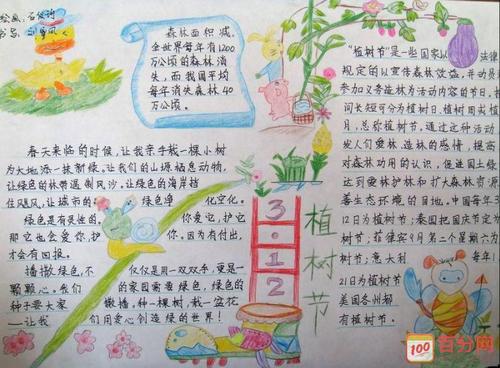 绘画：
书写：
森林面积减。
全世界每年有1200
万公顷的森林消
失，而我国平均
每年消失森林40
万公顷。
春天来临的时候，让我亲手栽一棵小树
为大地添一抹新绿。让我们的山源栖息动物，
让绿色的林带遏制风沙。让绿色的海岸挡
住飓风，让城市的绿色净化空气。
绿色是有灵性的，你爱它，护它
那它也会爱你，护你。因为有付出，
才会有回报。
播撒绿色，不仅仅用一双双手，更是一
颗颗心。我们的家园需要绿色，绿色的
种子要大家撒播，种一棵树，栽一盆花
—让我们用爱心创造绿的世界！
3.12
植树节
“植树节”是一些国家以法律
规定的以宣传森林效益，并动员
参加义务造林为活动内容的节日。
间长短可分为植树日、植树周或植
月，总称植树节。通过这种活动
发人们爱林、造林的感情，提高
对森林功用的认识，促进国土绿
达到爱林护林和扩大森林资源
善生态环境的目地。中国每年3
12日为植树节；泰国把国庆节定
树节；菲律宾9月第二个星期六为
树节；意大利每年1
21日为植树节
美国各州都
有植树节。
100
百分网